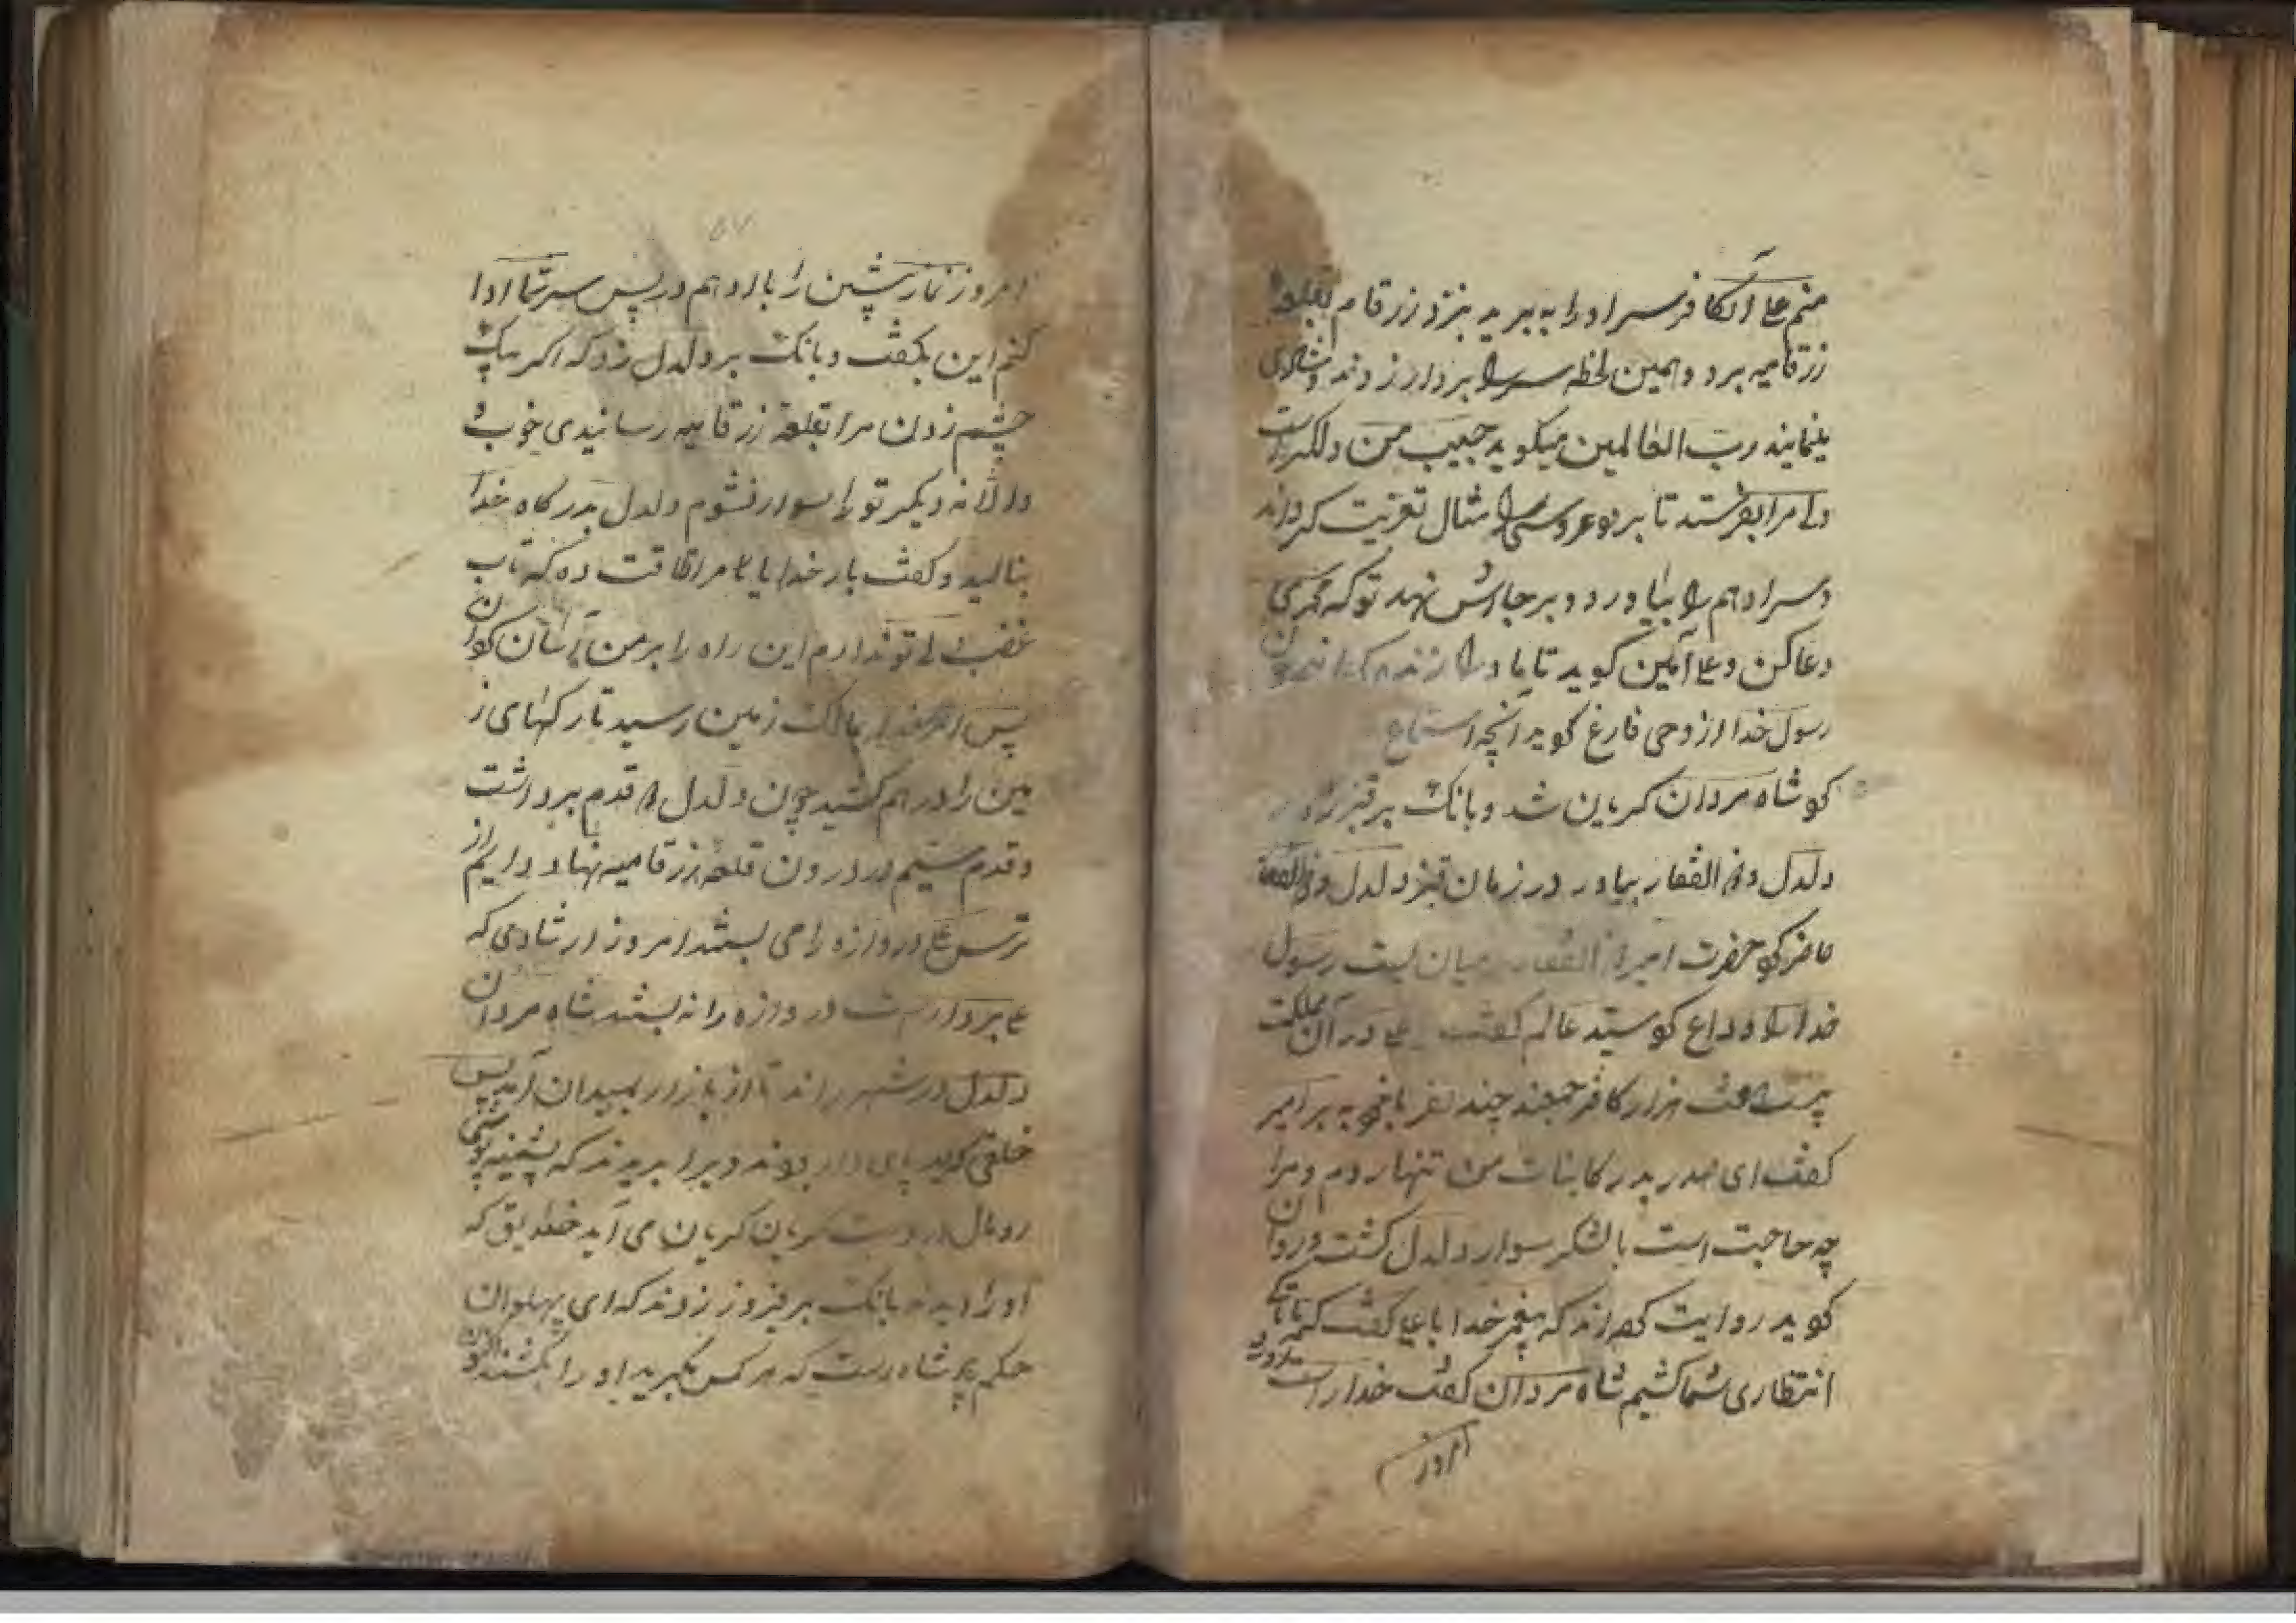 منم علی آن کافر سر او را به برید بنزد زرقام بقلعهٔ
زرقامیه برد و همین لحظه سر را بردار زدند و شادی
مینمایند رب العالمین میکوید حبیب من دلکیر است
علی را بفرستد تا بر تو عروسی را مثال تعزیت کرداند
و سر ادهم را بیاورد و بر جایش نهد تو که محمدی
دعا کن و علی آمین کوید تا ما او را زنده کردانیم چون
رسول خدا از وحی فارغ کوید آنچه استماع
کو شاه مردان کریان شد و بانک بر قنبر زد
دلدل و ذوالفقار بیاور در زمان قنبر دلدل و ذوالفقار
حاضر کو حضرت امیر ذوالفقار میان بست رسول
خدا را وداع کو سید عالم کفت علی در آن مملکت
هزار کافر جمعند چند نفر با خود به بر امیر
کفت ای صدر بدر کاینات من تنها روم و مرا
چه حاجت است بالشکر سوار دلدل کشت و روان
کوید روایت کرده‌اند که پیغمبر خدا با علی کفت که تا کی
انتظاری شما کشیم شاه مردان کفت خدا راست
امروز
امروز نماز پشین را با ادهم در پس سر شما ادا
کنم این بکفت و بانک بر دلدل زد که اکر بیک
چشم زدن مرا بقلعهٔ زرقامیه رسانیدی خوب
والا نه دیکر تو را سوار نشوم دلدل بدرکاه خدا
بنالید و کفت بار خدایا مرا طاقت ده که تاب
غضب علی تو ندارم این راه را بر من آسان کردان
پس امر خدا بمالک زمین رسید تا رکهای ز
مین را در هم کشید چون دلدل قدم برداشت
و قدم سیم در درون قلعهٔ زرقامیه نهاد دایم از
ترس علی دروازه را می بستند امروز از شادی که
علی بردار است دروازه را نه بستند شاه مردان
دلدل در شهر راند تا از بازار بمیدان آمد پس
خلقی که به پای دار بودند ویرا بدیدند که پشمینه پوشی
رومال در دست کریان کریان می آید خلایق که
او را دیدند بانک بر فیروز زدند که ای پهلوان
حکم پادشاه است که هر کس بکیرید او را بکشند